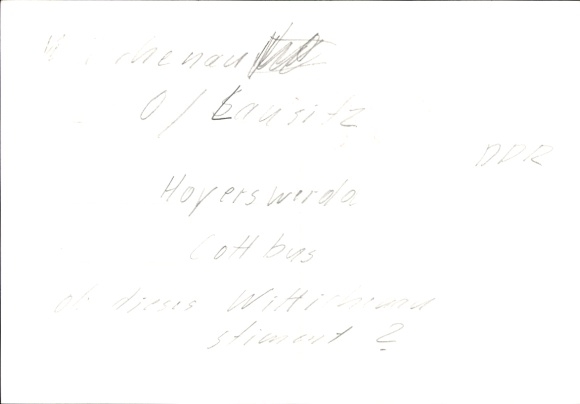 Wittichenau
O/Lausitz
DDR
Hoyerswerda
Cottbus
ob dieses Wittichenau
stimmt ?